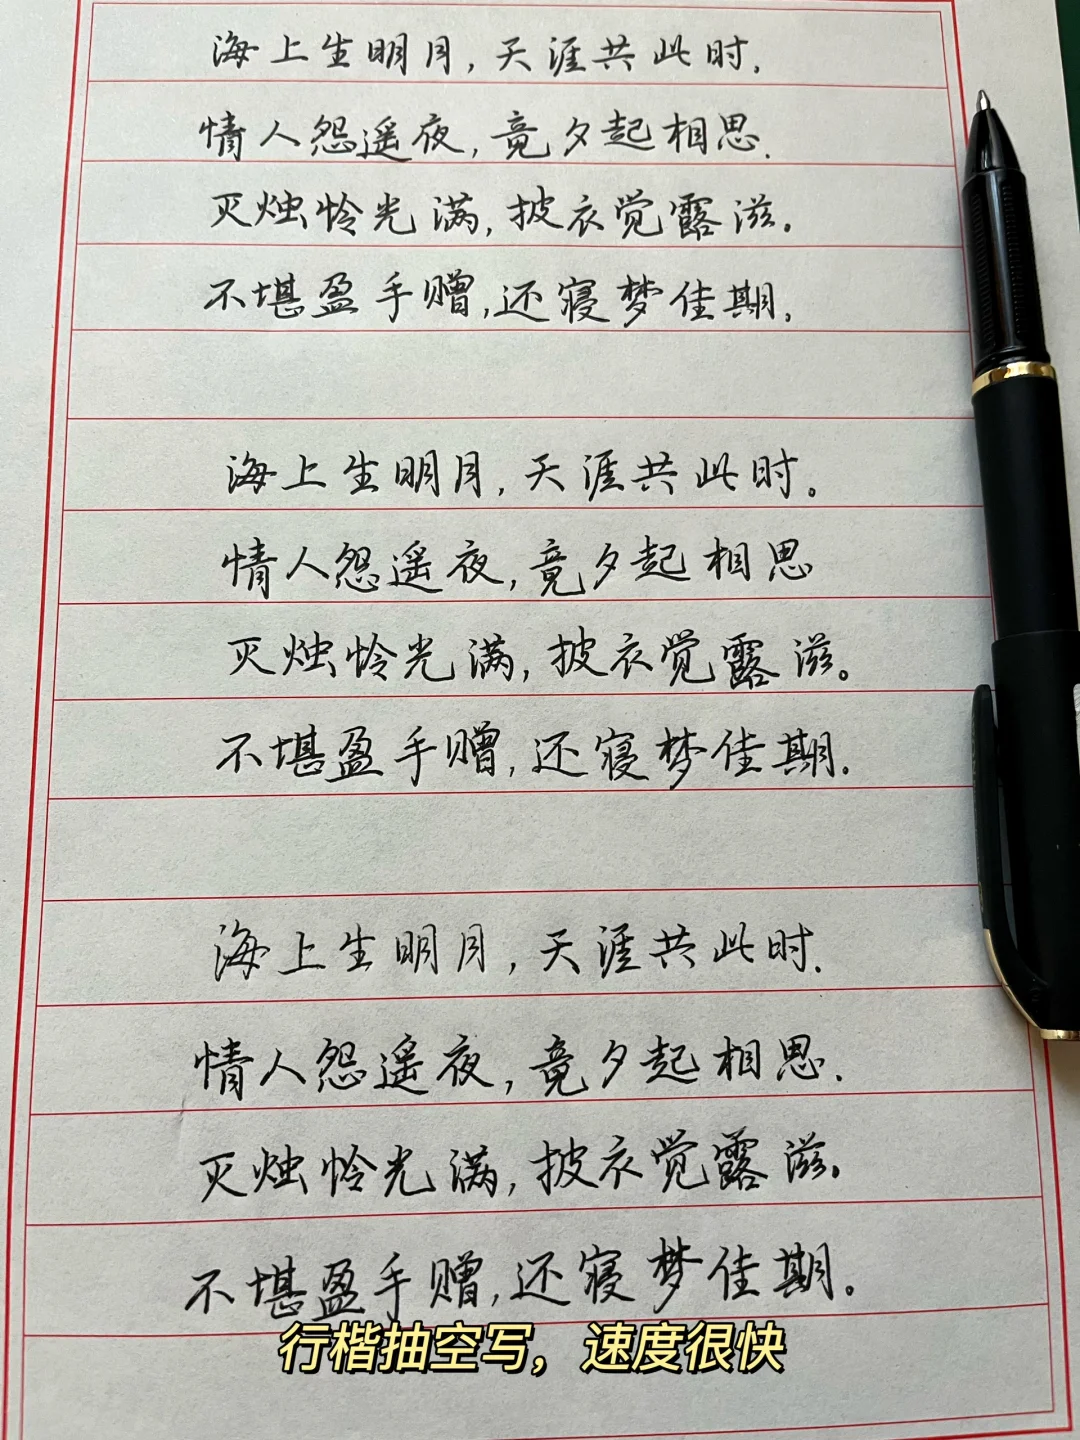 海上生明月,天涯共此时.
情人怨遥夜,竟夕起相思.
灭烛怜光满,披衣觉露滋。
不堪盈手赠,还寝梦佳期.
海上生明月,天涯共此时。
情人怨遥夜,竟夕起相思
灭烛怜光满,披衣觉露滋。
不堪盈手赠,还寝梦佳期.
海上生明月,天涯共此时.
情人怨遥夜,竟夕起相思.
灭烛怜光满,披衣觉露滋。
不堪盈手赠,还寝梦佳期。
行楷抽空写，速度很快